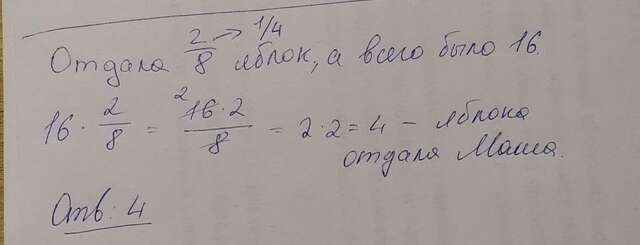 Отдала 2/8 → 1/4 яблок, а всего было 16.
16 · 2/8 = 16 · 2/8 2 = 2 · 2 = 4 – яблока
отдала Маша.
Отв: 4